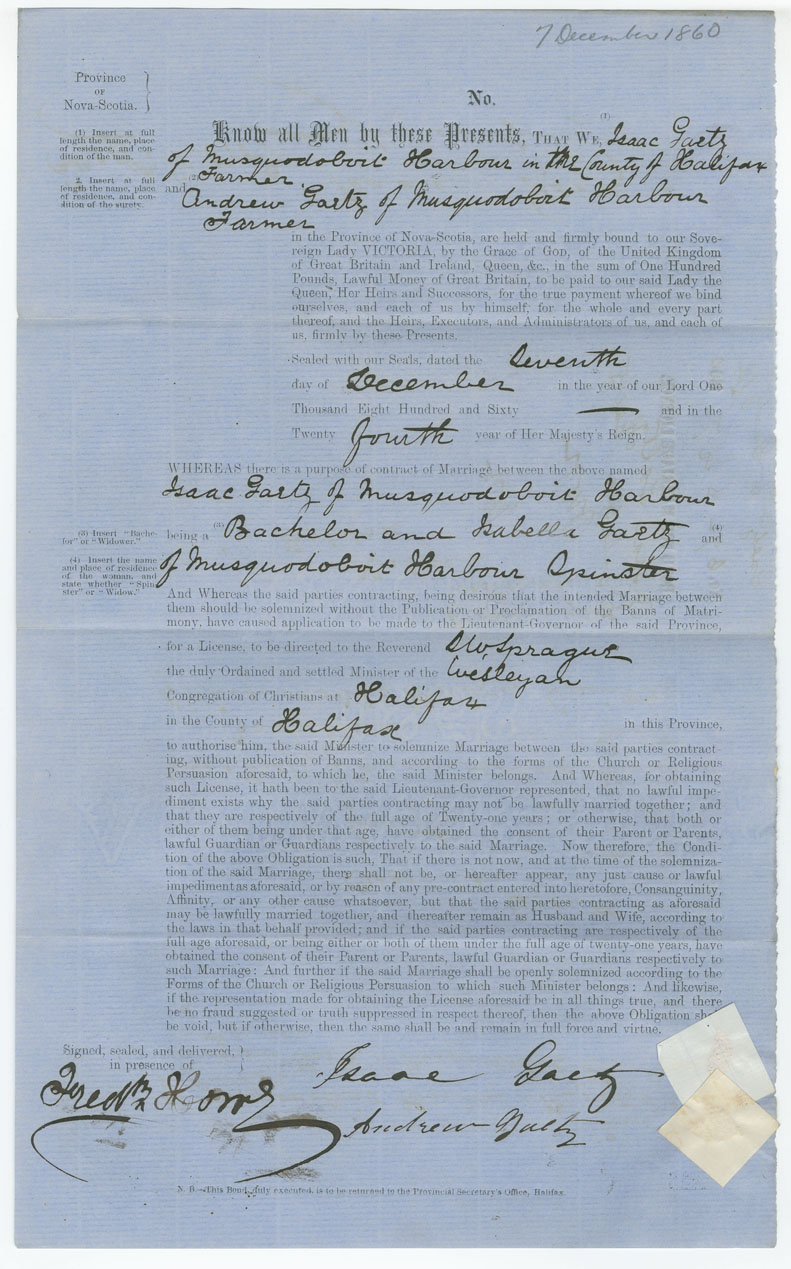 7 December 1860
Province
OF
Nova-Scotia.
No.
(1) Insert at full
length the name, place
of residence, and con-
dition of the man.
(1)
Know all Men by these Presents, THAT WE, Isaac Gaetz
of Musquodoboit Harbour in the County of Halifax
Farmer
2. Insert at full
length the name, place
of residence, and con-
dition of the surety.
(2)
and Andrew Gaetz of Musquodoboit Harbour
Farmer
in the Province of Nova-Scotia, are held and firmly bound to our Sove-
reign Lady VICTORIA, by the Grace of GOD, of the United Kingdom
of Great Britain and Ireland, Queen, &c., in the sum of One Hundred
Pounds, Lawful Money of Great Britain, to be paid to our said Lady the
Queen, Her Heirs and Successors, for the true payment whereof we bind
ourselves, and each of us by himself, for the whole and every part
thereof, and the Heirs, Executors, and Administrators of us, and each of
us, firmly by these Presents.
Sealed with our Seals, dated the Seventh
day of December in the year of our Lord One
Thousand Eight Hundred and Sixty — and in the
Twenty fourth year of Her Majesty's Reign.
WHEREAS there is a purpose of contract of Marriage between the above named
Isaac Gaetz of Musquodoboit Harbour
(3) Insert "Bache-
lor" or "Widower."
being a (3) Bachelor and Isabella Gaetz (4) and
(4) Insert the name
and place of residence
of the woman, and
state whether "Spin
ster" or "Widow."
of Musquodoboit Harbour Spinster
And Whereas the said parties contracting, being desirous that the intended Marriage between
them should be solemnized without the Publication or Proclamation of the Banns of Matri-
mony, have caused application to be made to the Lieutenant-Governor of the said Province,
for a License, to be directed to the Reverend SW Sprague
the duly Ordained and settled Minister of the Wesleyan
Congregation of Christians at Halifax
in the County of Halifax in this Province,
to authorise him, the said Minister to solemnize Marriage between the said parties contract-
ing, without publication of Banns, and according to the forms of the Church or Religious
Persuasion aforesaid, to which he, the said Minister belongs. And Whereas, for obtaining
such License, it hath been to the said Lieutenant-Governor represented, that no lawful impe-
diment exists why the said parties contracting may not be lawfully married together; and
that they are respectively of the full age of Twenty-one years; or otherwise, that both or
either of them being under that age, have obtained the consent of their Parent or Parents,
lawful Guardian or Guardians respectively to the said Marriage. Now therefore, the Condi-
tion of the above Obligation is such, That if there is not now, and at the time of the solemniza-
tion of the said Marriage, there shall not be, or hereafter appear, any just cause or lawful
impediment as aforesaid, or by reason of any pre-contract entered into heretofore, Consanguinity,
Affinity, or any other cause whatsoever, but that the said parties contracting as aforesaid
may be lawfully married together, and thereafter remain as Husband and Wife, according to
the laws in that behalf provided; and if the said parties contracting are respectively of the
full age aforesaid, or being either or both of them under the full age of twenty-one years, have
obtained the consent of their Parent or Parents, lawful Guardian or Guardians respectively to
such Marriage: And further if the said Marriage shall be openly solemnized according to the
Forms of the Church or Religious Persuasion to which such Minister belongs: And likewise,
if the representation made for obtaining the License aforesaid be in all things true, and there
be no fraud suggested or truth suppressed in respect thereof, then the above Obligation shall
be void, but if otherwise, then the same shall be and remain in full force and virtue.
Signed, sealed, and delivered,
in presence of
Isaac Gaetz
Fredk
Andrew Gaetz
N. B.—This Bond, duly executed, is to be returned to the Provincial Secretary's Office, Halifax.